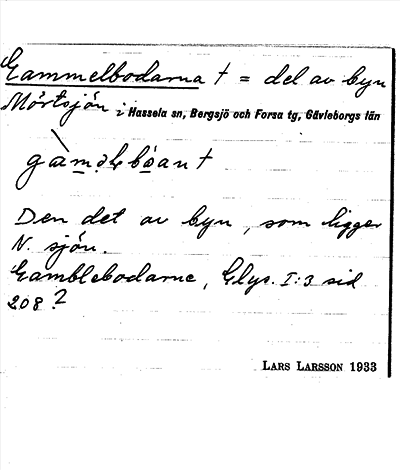 Gammelbodarna t = del av byn
Mörtsjön i Hassela sn, Bergsjö och Forsa tg, Gävleborgs län
Den det av byn, som ligger
N. sjön.
Gamblebodarne, Glys. I:3 sid
208?
LARS LARSSON 1933